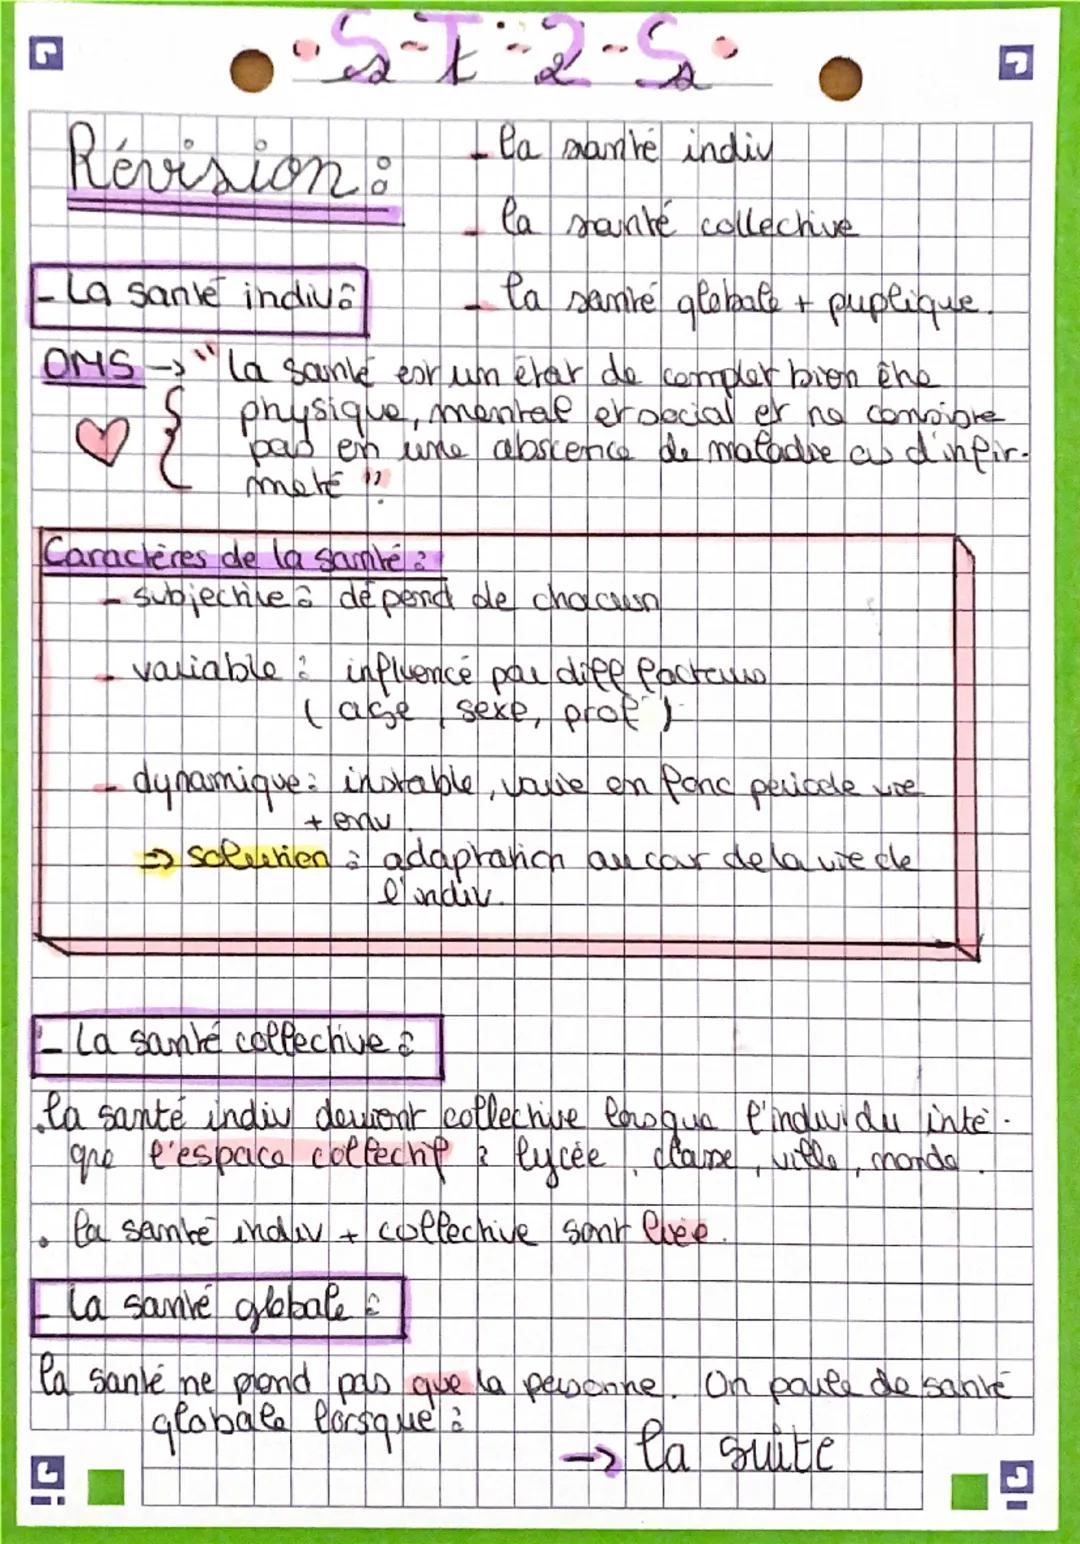 S-T-2-S
Révision :
- la santé indiv
- la santé collective
- la santé globale + puplique.
- La santé indiv :
OMS → "La santé est un état de complet bien être
physique, mental et social et ne consiste
pas en une abscence de maladie ou d'infir-
meté".
Caractères de la santé :
- subjective : dépend de chacun
- variable : influencé par diff facteurs
(age, sexe, prof)
- dynamique : instable, varie en fonc periode vie
+ env.
⇒ solution : adaptation au cour de la vie de
l'indiv.
- La santé collective :
. la santé indiv devient collective lorsque l'individu inté-
gre l'espace collectif : lycée, classe, ville, monde.
• la santé indiv + collective sont liée.
- La santé globale :
la santé ne prend pas que la personne. On parle de santé
globale lorsque :
→ la suite